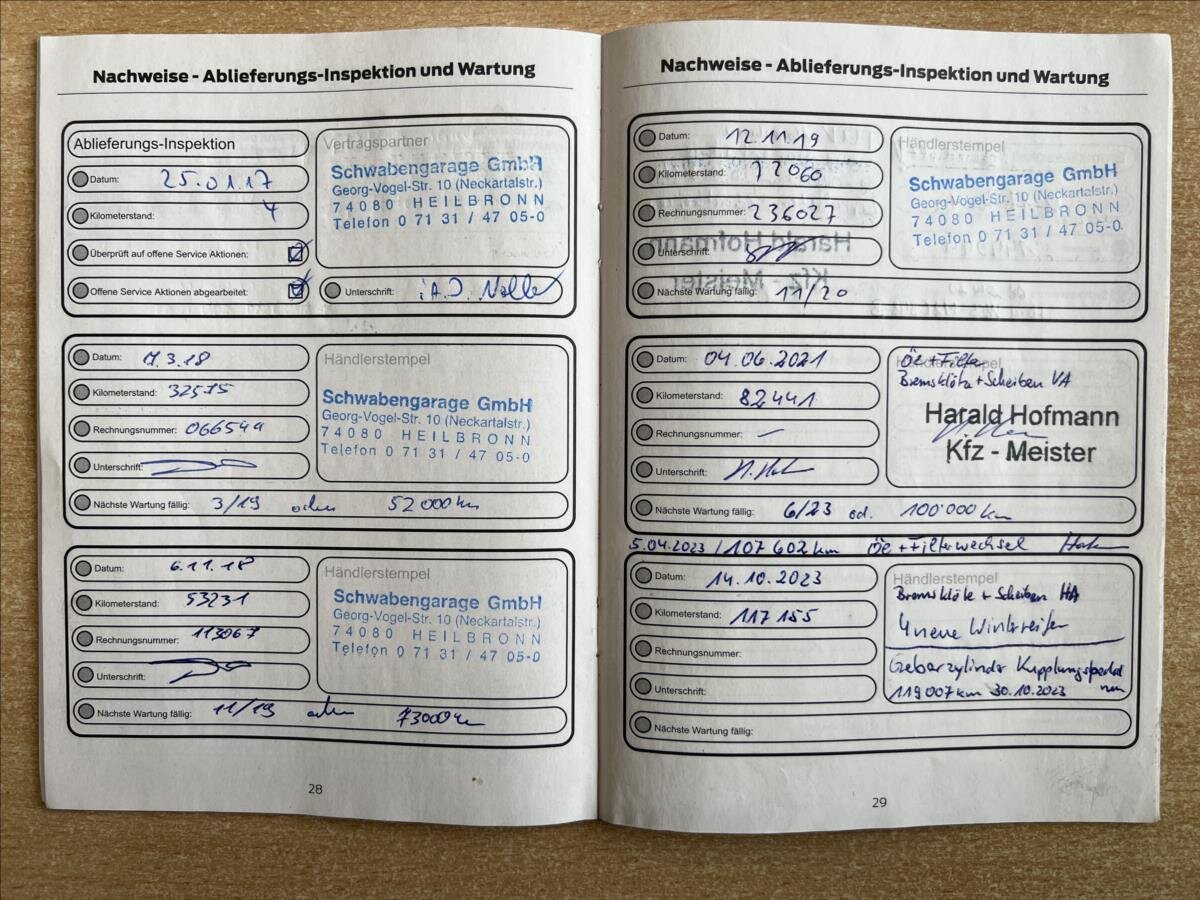 Nachweise - Ablieferungs-Inspektion und Wartung
Ablieferungs-Inspektion
Datum: 25.01.17
Kilometerstand: 4
Überprüft auf offene Service Aktionen:
Offene Service Aktionen abgearbeitet:
Vertragspartner
Schwabengarage GmbH
Georg-Vogel-Str. 10 (Neckartalstr.)
74080 HEILBRONN
Telefon 0 71 31 / 47 05-0
Unterschrift: i.A.
Datum: 7.3.18
Kilometerstand: 32575
Rechnungsnummer: 066544
Unterschrift:
Nächste Wartung fällig: 3/19 oder 52000 km
Händlerstempel
Schwabengarage GmbH
Georg-Vogel-Str. 10 (Neckartalstr.)
74080 HEILBRONN
Telefon 0 71 31 / 47 05-0
Datum: 6.11.18
Kilometerstand: 53231
Rechnungsnummer: 113067
Unterschrift:
Nächste Wartung fällig: 11/19 oder 73000 km
Händlerstempel
Schwabengarage GmbH
Georg-Vogel-Str. 10 (Neckartalstr.)
74080 HEILBRONN
Telefon 0 71 31 / 47 05-0
28
Nachweise - Ablieferungs-Inspektion und Wartung
Datum: 12.11.19
Kilometerstand: 72060
Rechnungsnummer: 236027
Unterschrift:
Nächste Wartung fällig: 11/20
Händlerstempel
Schwabengarage GmbH
Georg-Vogel-Str. 10 (Neckartalstr.)
74080 HEILBRONN
Telefon 0 71 31 / 47 05-0
Harald Hofmann
Kfz - Meister
Datum: 04.06.2021
Kilometerstand: 82441
Rechnungsnummer: –
Unterschrift:
Nächste Wartung fällig: 6/23 od. 100'000 km
Händlerstempel
Öl + Filter
Bremsklötze + Scheiben VA
Harald Hofmann
Kfz - Meister
5.04.2023 / 107 602 km Öl + Filterwechsel
Datum: 14.10.2023
Kilometerstand: 117155
Rechnungsnummer:
Unterschrift:
Nächste Wartung fällig:
Händlerstempel
Bremsklötze + Scheiben HA
4 neue Winterreifen
Geberzylinder Kupplungspedal neu
119007 km 30.10.2023
29